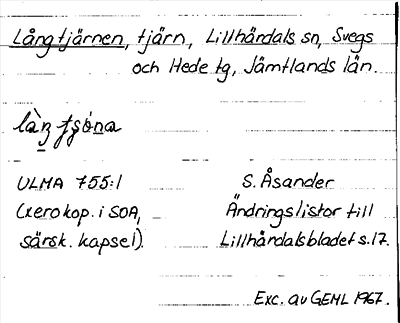 Långtjärnen, tjärn, Lillhärdals sn, Svegs
och Hede tg, Jämtlands län.
ULMA 755:1
(xerokop. i SOA,
särsk. kapsel).
S. Åsander
Ändringslistor till
Lillhärdalsbladet s.17.
Exc. av GEHL 1967.